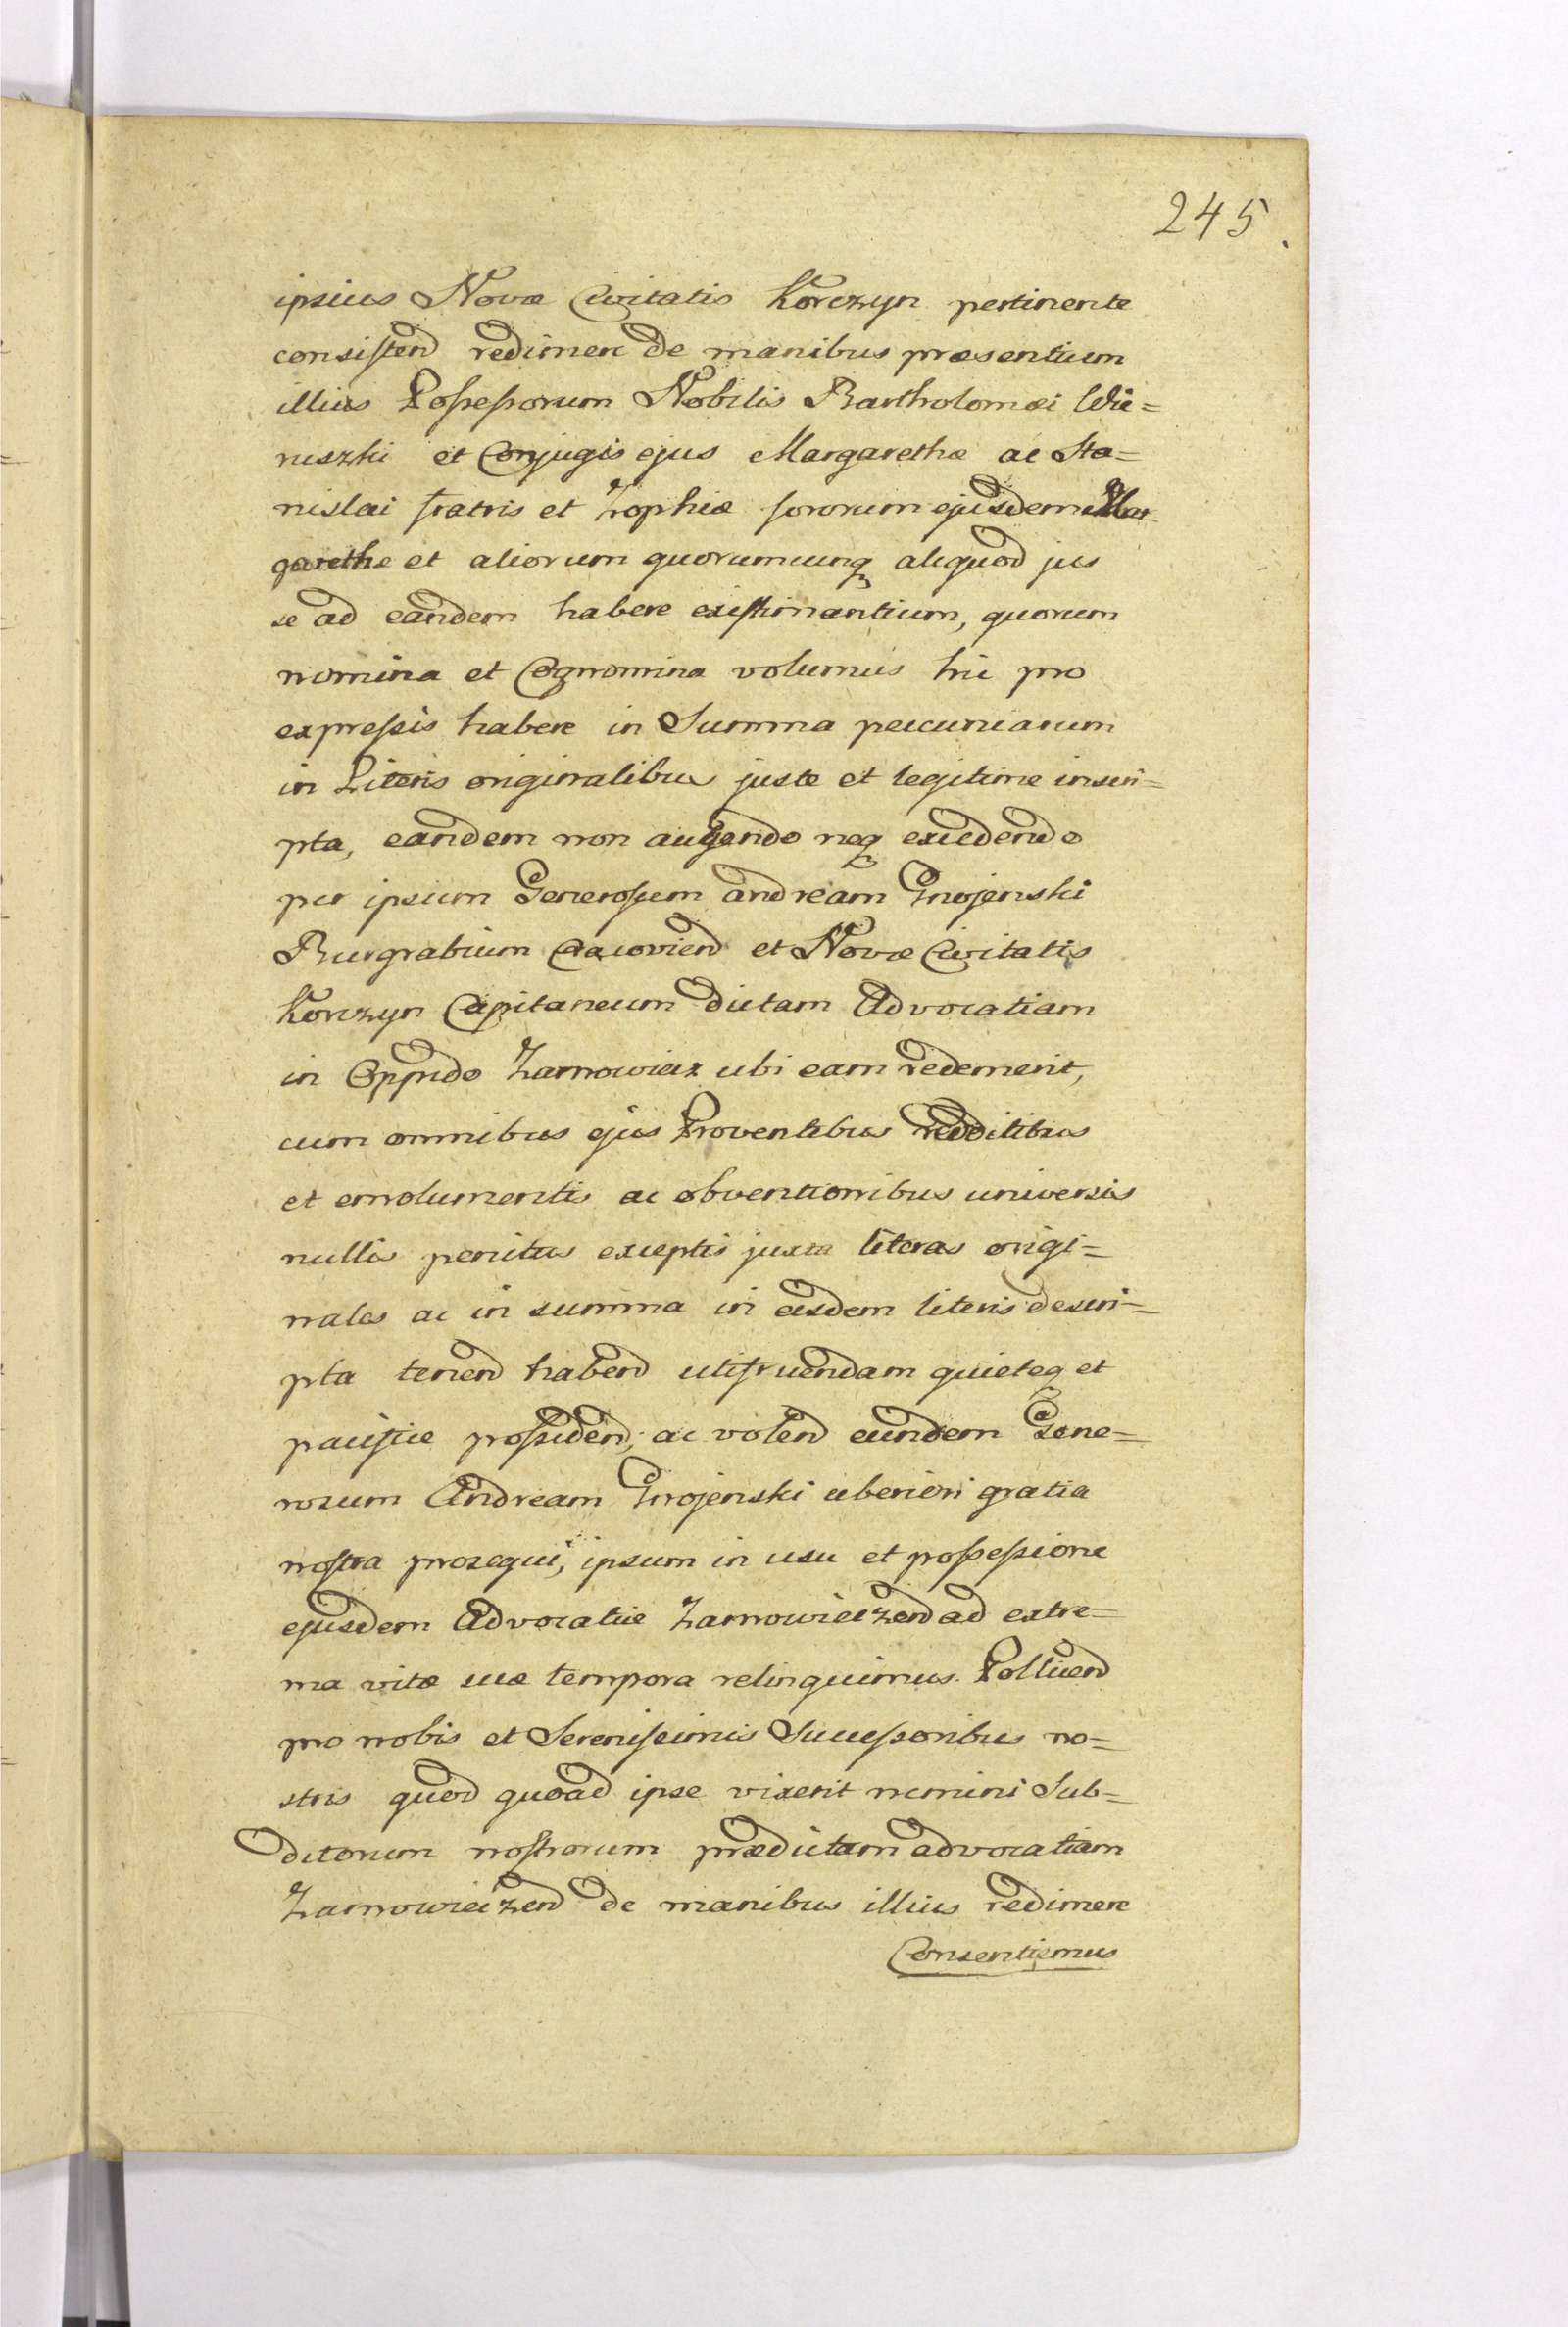 245.
ipsius Novæ Civitatis Korczyn pertinente
consistend redimere de manibus præsentium
illius Possessorum Nobilis Bartholomæi Wie=
ruszki et Conjugis ejus Margarethæ ac Sta=
nislai fratris et Zophiæ sororum ejusdem Mar=
garethe et aliorum quorumcunq aliquod jus
se ad eandem habere existimantium, quorum
nomina et Cognomina volumus hic pro
expressis habere in Summa peccuniarum
in Literis originalibus juste et legitime inscri=
pta, eandem non augendo neq excedendo
per ipsum Generosum andream Gnojenski
Burgrabium Cracoviend et Novæ Civitatis
Korczyn Capitaneum dictam Advocatiam
in Oppido Zarnowiecz ubi eam redemerit,
cum omnibus ejus Proventibus redditibus
et emolumentis ac obventionibus universis
nullis penitus exceptis juxta literas origi=
nales ac in summa in eisdem literis descri=
pta tenend habend utifruendam quieteq et
pacifice possidend, ac volend eundem Gene=
rosum Andream Gnojenski uberiori gratia
nostra prosequi, ipsum in usu et possessione
ejusdem Advocatiæ Zarnowieczend ad extre=
ma vitæ suæ tempora relinquimus. Pollicend
pro nobis et Serenissimis Successoribus no=
stris quod quoad ipse vixerit nemini Sub=
ditorum nostrorum prædictam advocatiam
Zarnowieczend de manibus illius redimere
Consentiemus